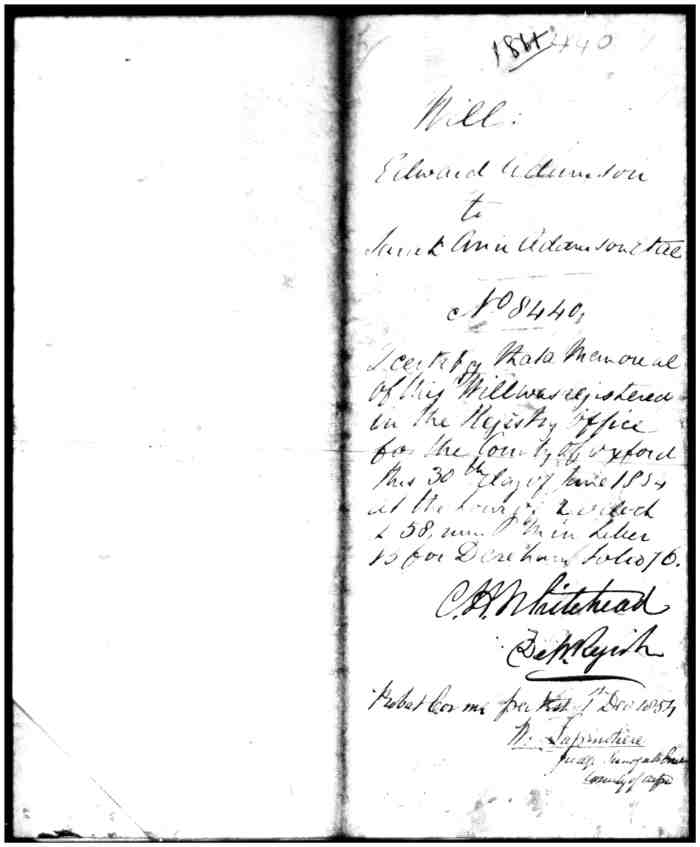 1864 440
Will:
Edward Adamson
to
Sarah Ann Adamson et al
No 8440,
I certify that a Memorial
of this Will was registered
in the Registry Office
for the County of Oxford
this 30th day of June 1854
at the hour of 2 o'clock
& 58, min P M in Liber
B for Dereham folio 76.
C. H. Whitehead
Dep. Regist
1st Dec 1854
W. Lapenotiere
Judge Surrogate Court
County of Oxfo